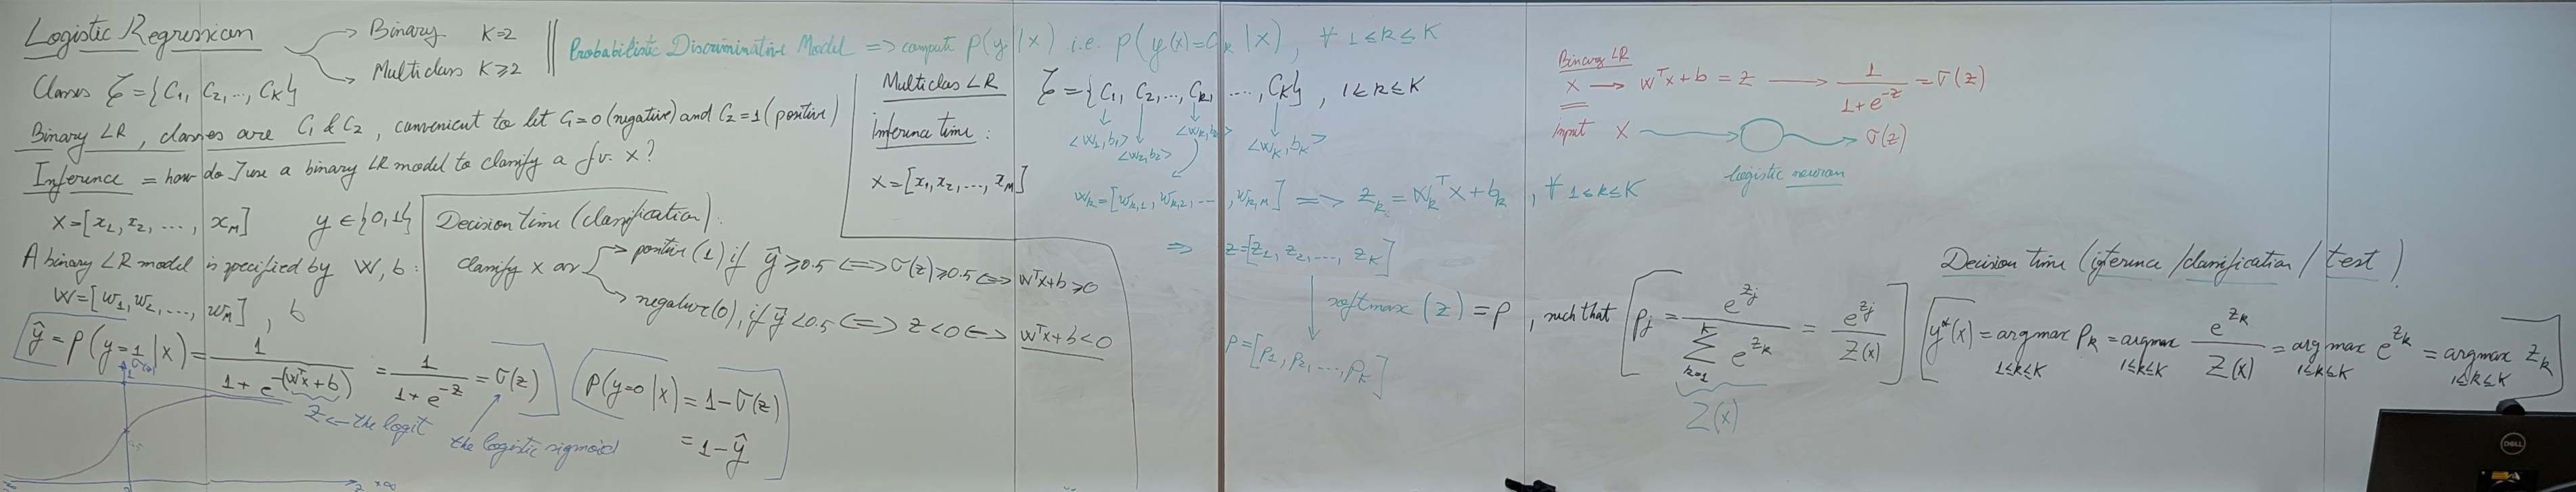 Logistic Regression → Binary K=2
→ Multiclass K≥2
Probabilistic Discriminative Model => compute p(y|x) i.e. p(y(x)=C_k|x), ∀ 1≤k≤K
Classes ζ={C_1, C_2, ..., C_K}
Binary LR, classes are C_1 & C_2, convenient to let C_1=0 (negative) and C_2=1 (positive)
Inference = how do I use a binary LR model to classify a f.v. x?
X=[x_1, x_2, ..., x_M] y∈{0,1}
A binary LR model is specified by W, b:
W=[w_1, w_2, ..., w_M], b
ŷ = p(y=1|x) = 1/(1+e^-(w^Tx+b)) = 1/(1+e^-z) = σ(z)
z ← the logit
the logistic sigmoid
p(y=0|x) = 1-σ(z)
= 1-ŷ
Decision time (classification):
classify x as → positive (1) if ŷ≥0.5 <=> σ(z)≥0.5 <=> w^Tx+b≥0
→ negative (0), if ŷ<0.5 <=> z<0 <=> w^Tx+b<0
Multiclass LR
Inference time:
X=[x_1, x_2, ..., x_M]
ζ={C_1, C_2, ..., C_k, ..., C_K}, 1≤k≤K
<w_1, b_1> <w_2, b_2> <w_k, b_k> <w_K, b_K>
w_k=[w_k,1, w_k,2, ..., w_k,M] => z_k = w_k^T x + b_k, ∀ 1≤k≤K
=> z=[z_1, z_2, ..., z_K]
softmax (z) = p, such that [p_j = e^z_j / Σ_{k=1}^K e^z_k = e^z_j / Z(x)]
Z(x)
p=[p_1, p_2, ..., p_K]
Binary LR
X → w^Tx+b = z → 1/(1+e^-z) = σ(z)
input X → σ(z)
logistic neuron
Decision time (inference / classification / test)
y*(x) = argmax_{1≤k≤K} p_k = argmax_{1≤k≤K} e^z_k / Z(x) = argmax_{1≤k≤K} e^z_k = argmax_{1≤k≤K} z_k
DELL